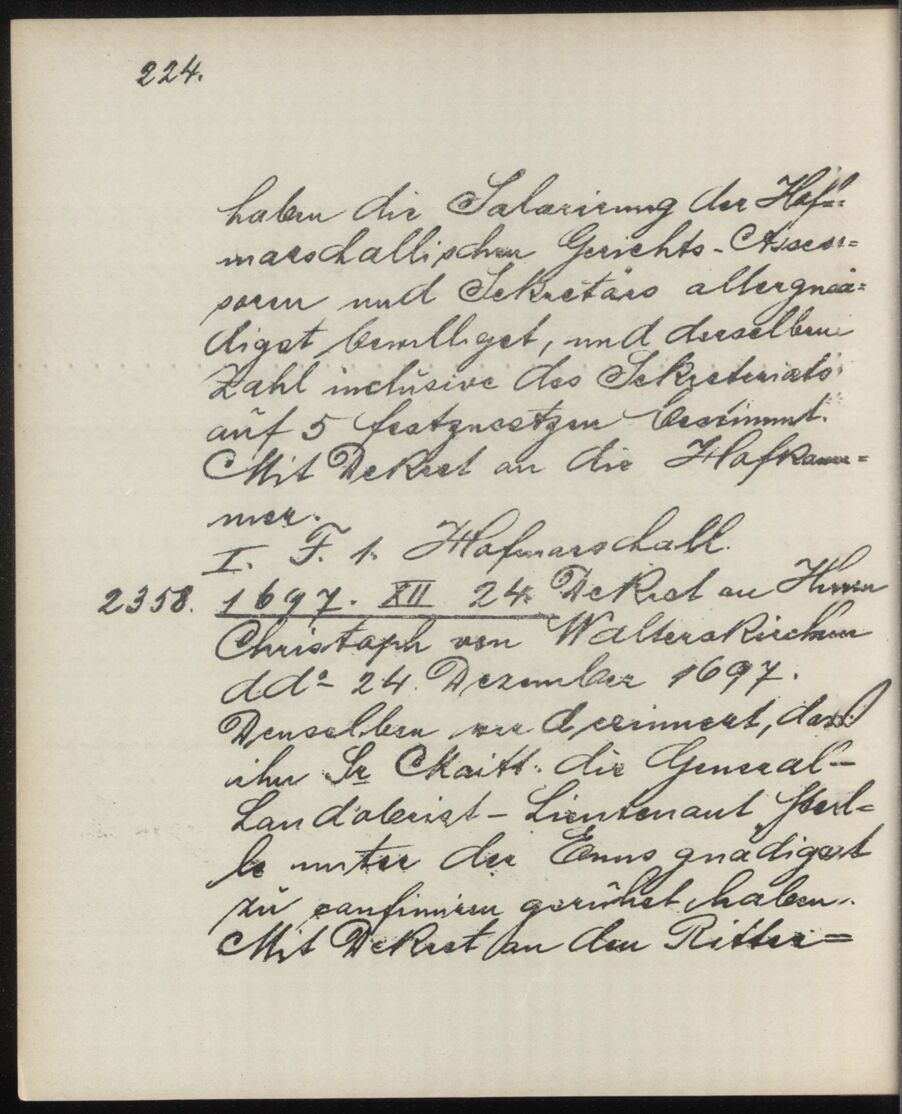 224.
haben die Salarirung der Hof=
marschallischen Gerichts-Asses=
soren und Sekretärs allergnä=
digst bewilliget, und derselben
Zahl inclusive des Sekreteriats
auf 5 festzusetzen bestimmt.
Mit Dekret an die Hofkam=
mer.
I. F. 1. Hofmarschall.
2358. 1697. XII 24. Dekret an Herrn
Christoph von Walterskirchen
ddo 24. Dezember 1697.
Denselben werd erinnert, dass
ihn Sr Maitt. die General-
Landobrist-Lieutenant Stel=
le unter der Enns gnädigst
zu confimiren geruhet haben.
Mit Dekret an den Ritter=